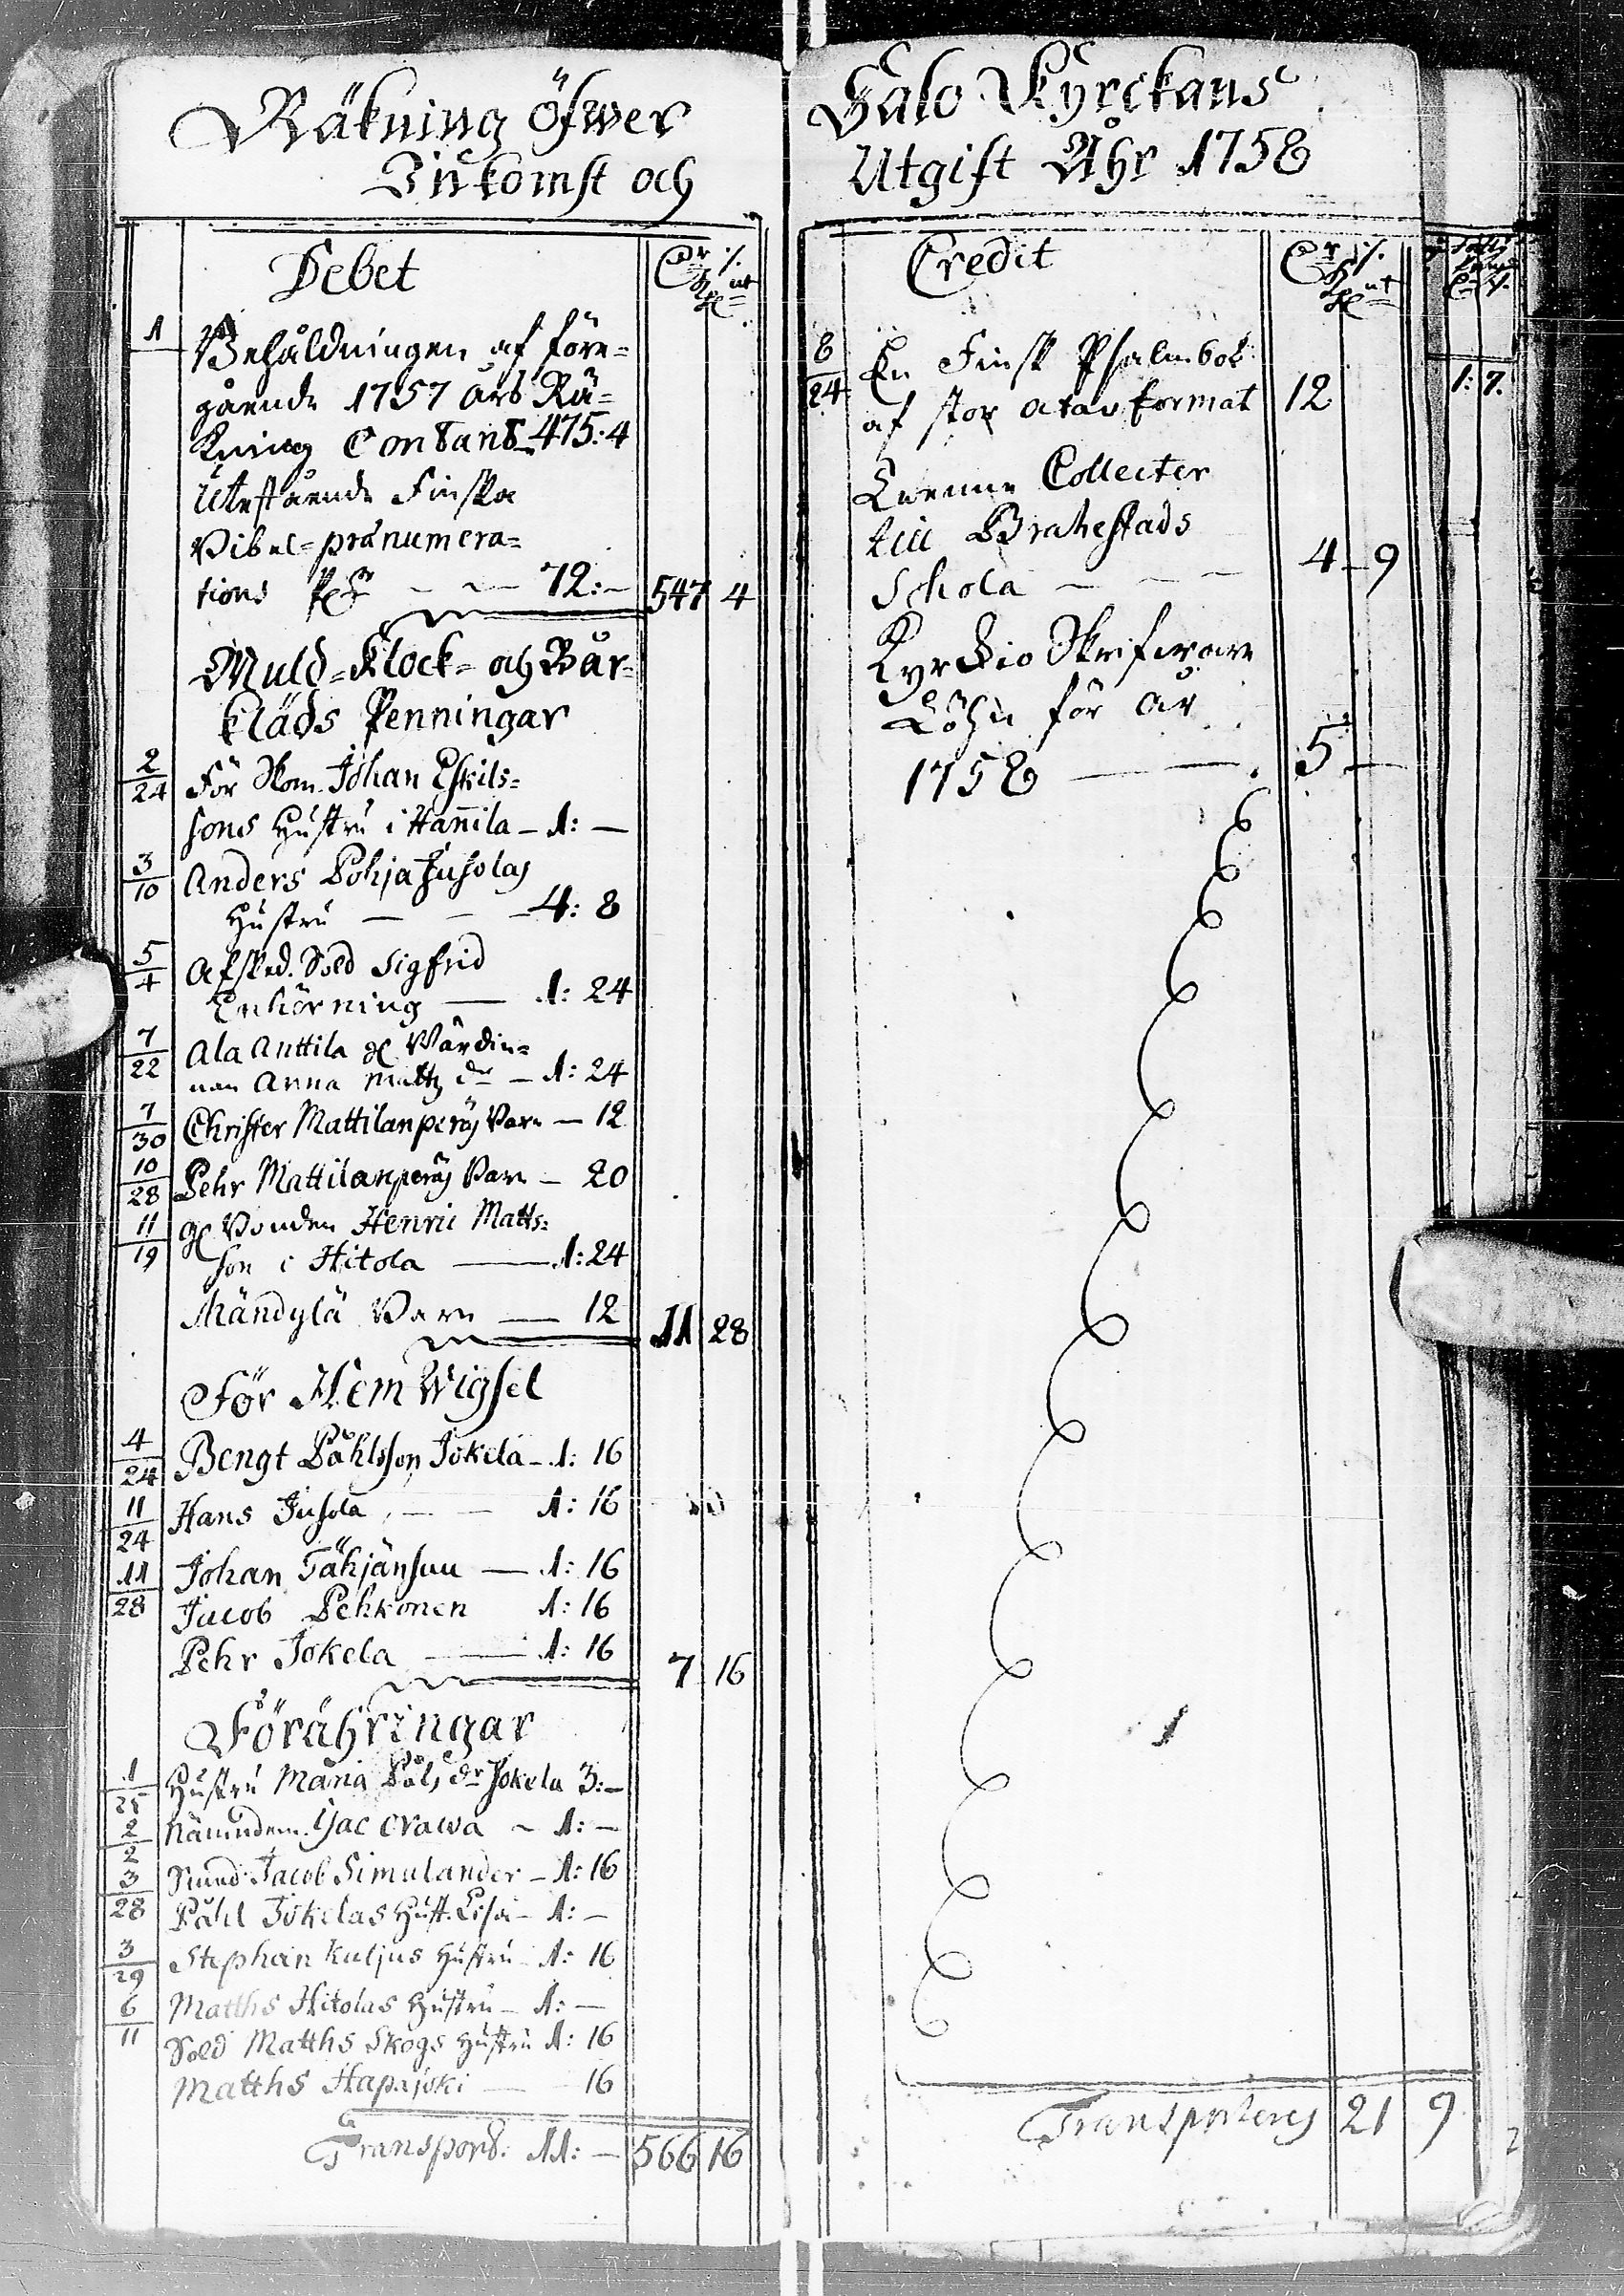 Räkning öfwer
Inkomst och
Debet
Dr s.
Kpr mt
1
Behåldningen af före=
gående 1757 års Rä=
kning Contant 475:4
Utestående Finska
Bibel=prænumera=
tions — — 72:—
547 4
Muld=Klock= och Bår=
kläds Penningar
2/24 För Kom. Johan Eskils=
sons Hustru i Hannila — 1:—
3/10 Anders Pohja Jusolas
Hustru — — 4: 8
5/4 Afsked. Sold Sigfrid
Enhörning — 1: 24
7/22 Ala Anttila gl. Värdin=
nan Anna Matts dr — 1: 24
7/30 Christer Mattilanperäs Barn — 12
10/28 Pehr Mattilanperäs Barn — 20
11/19 gl Bonden Henric Matts=
son i Hitola — 1: 24
Mändylä Barn — 12
11 28
För Hem Wigsel
4/24 Bengt Påhlsson Jokela — 1: 16
11/24 Hans Jusola — 1: 16
11/28 Johan Tähjänsuu — 1: 16
Jacob Pehkonen 1: 16
Pehr Jokela — 1: 16
7 16
Förähringar
1/25 Hustru Maria Påls dr Jokela 3:—
2/2 Nämndem. Jac Orawa — 1:—
3/28 Jacob Simulander — 1: 16
Påhl Jokelas Hust. Lisa — 1:—
3/29 Stephan Kuljus Hustru — 1: 16
6/11 Matths Hitolas Hustru — 1:—
Sold Matths Skogs Hustru 1: 16
Matths Hapajoki — 16
Transport: 11:— 566 16
Salo Kyrckans
Utgift Åhr 1758
Credit
8/24 En Finsk Psalmbok
af stor octav format 12
1: 7.
Collecter
till Brahestads
Schola — — — 4 — 9
Kyrckio Skrifware
Löhn för år
1758 — — 5 —
Transporteres 21 9